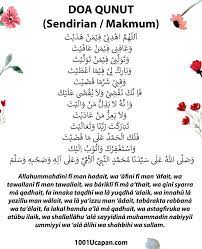 DOA QUNUT
(Sendirian / Makmum)
اَللّٰهُمَّ اهْدِنِيْ فِيْمَنْ هَدَيْتَ
وَعَافِنِيْ فِيْمَنْ عَافَيْتَ
وَتَوَلَّنِيْ فِيْمَنْ تَوَلَّيْتَ
وَبَارِكْ لِيْ فِيْمَا اَعْطَيْتَ
وَقِنِيْ شَرَّ مَا قَضَيْتَ
فَاِنَّكَ تَقْضِيْ وَلَا يُقْضٰى عَلَيْكَ
وَاِنَّهُ لَا يَذِلُّ مَنْ وَالَيْتَ
وَلَا يَعِزُّ مَنْ عَادَيْتَ
تَبَارَكْتَ رَبَّنَا وَتَعَالَيْتَ
فَلَكَ الْحَمْدُ عَلٰى مَا قَضَيْتَ
وَاَسْتَغْفِرُكَ وَاَتُوْبُ اِلَيْكَ
وَصَلَّى اللهُ عَلٰى سَيِّدِنَا مُحَمَّدٍ النَّبِيِّ الْاُمِّيِّ وَعَلٰى اٰلِهِ وَصَحْبِهِ وَسَلَّمَ
Allahummahdini fi man hadait, wa 'âfini fi man 'âfait, wa
tawallanî fi man tawallait, wa bâriklî fi mâ a'thait, wa qinî syarra
mâ qadhait, fa innaka taqdhî wa lâ yuqdhâ 'alaik, wa innahû lâ
yazillu man wâlait, wa lâ ya'izzu man 'âdait, tabârakta rabbanâ
wa ta'âlait, fa lakal hamdu a'lâ mâ qadhait, wa astagfiruka wa
atûbu ilaik, wa shallallâhu 'alâ sayyidinâ muhammadin nabiyyil
ummiyyi wa 'alâ âlihi wa shahbihi wa sallam.
1001Ucapan.com